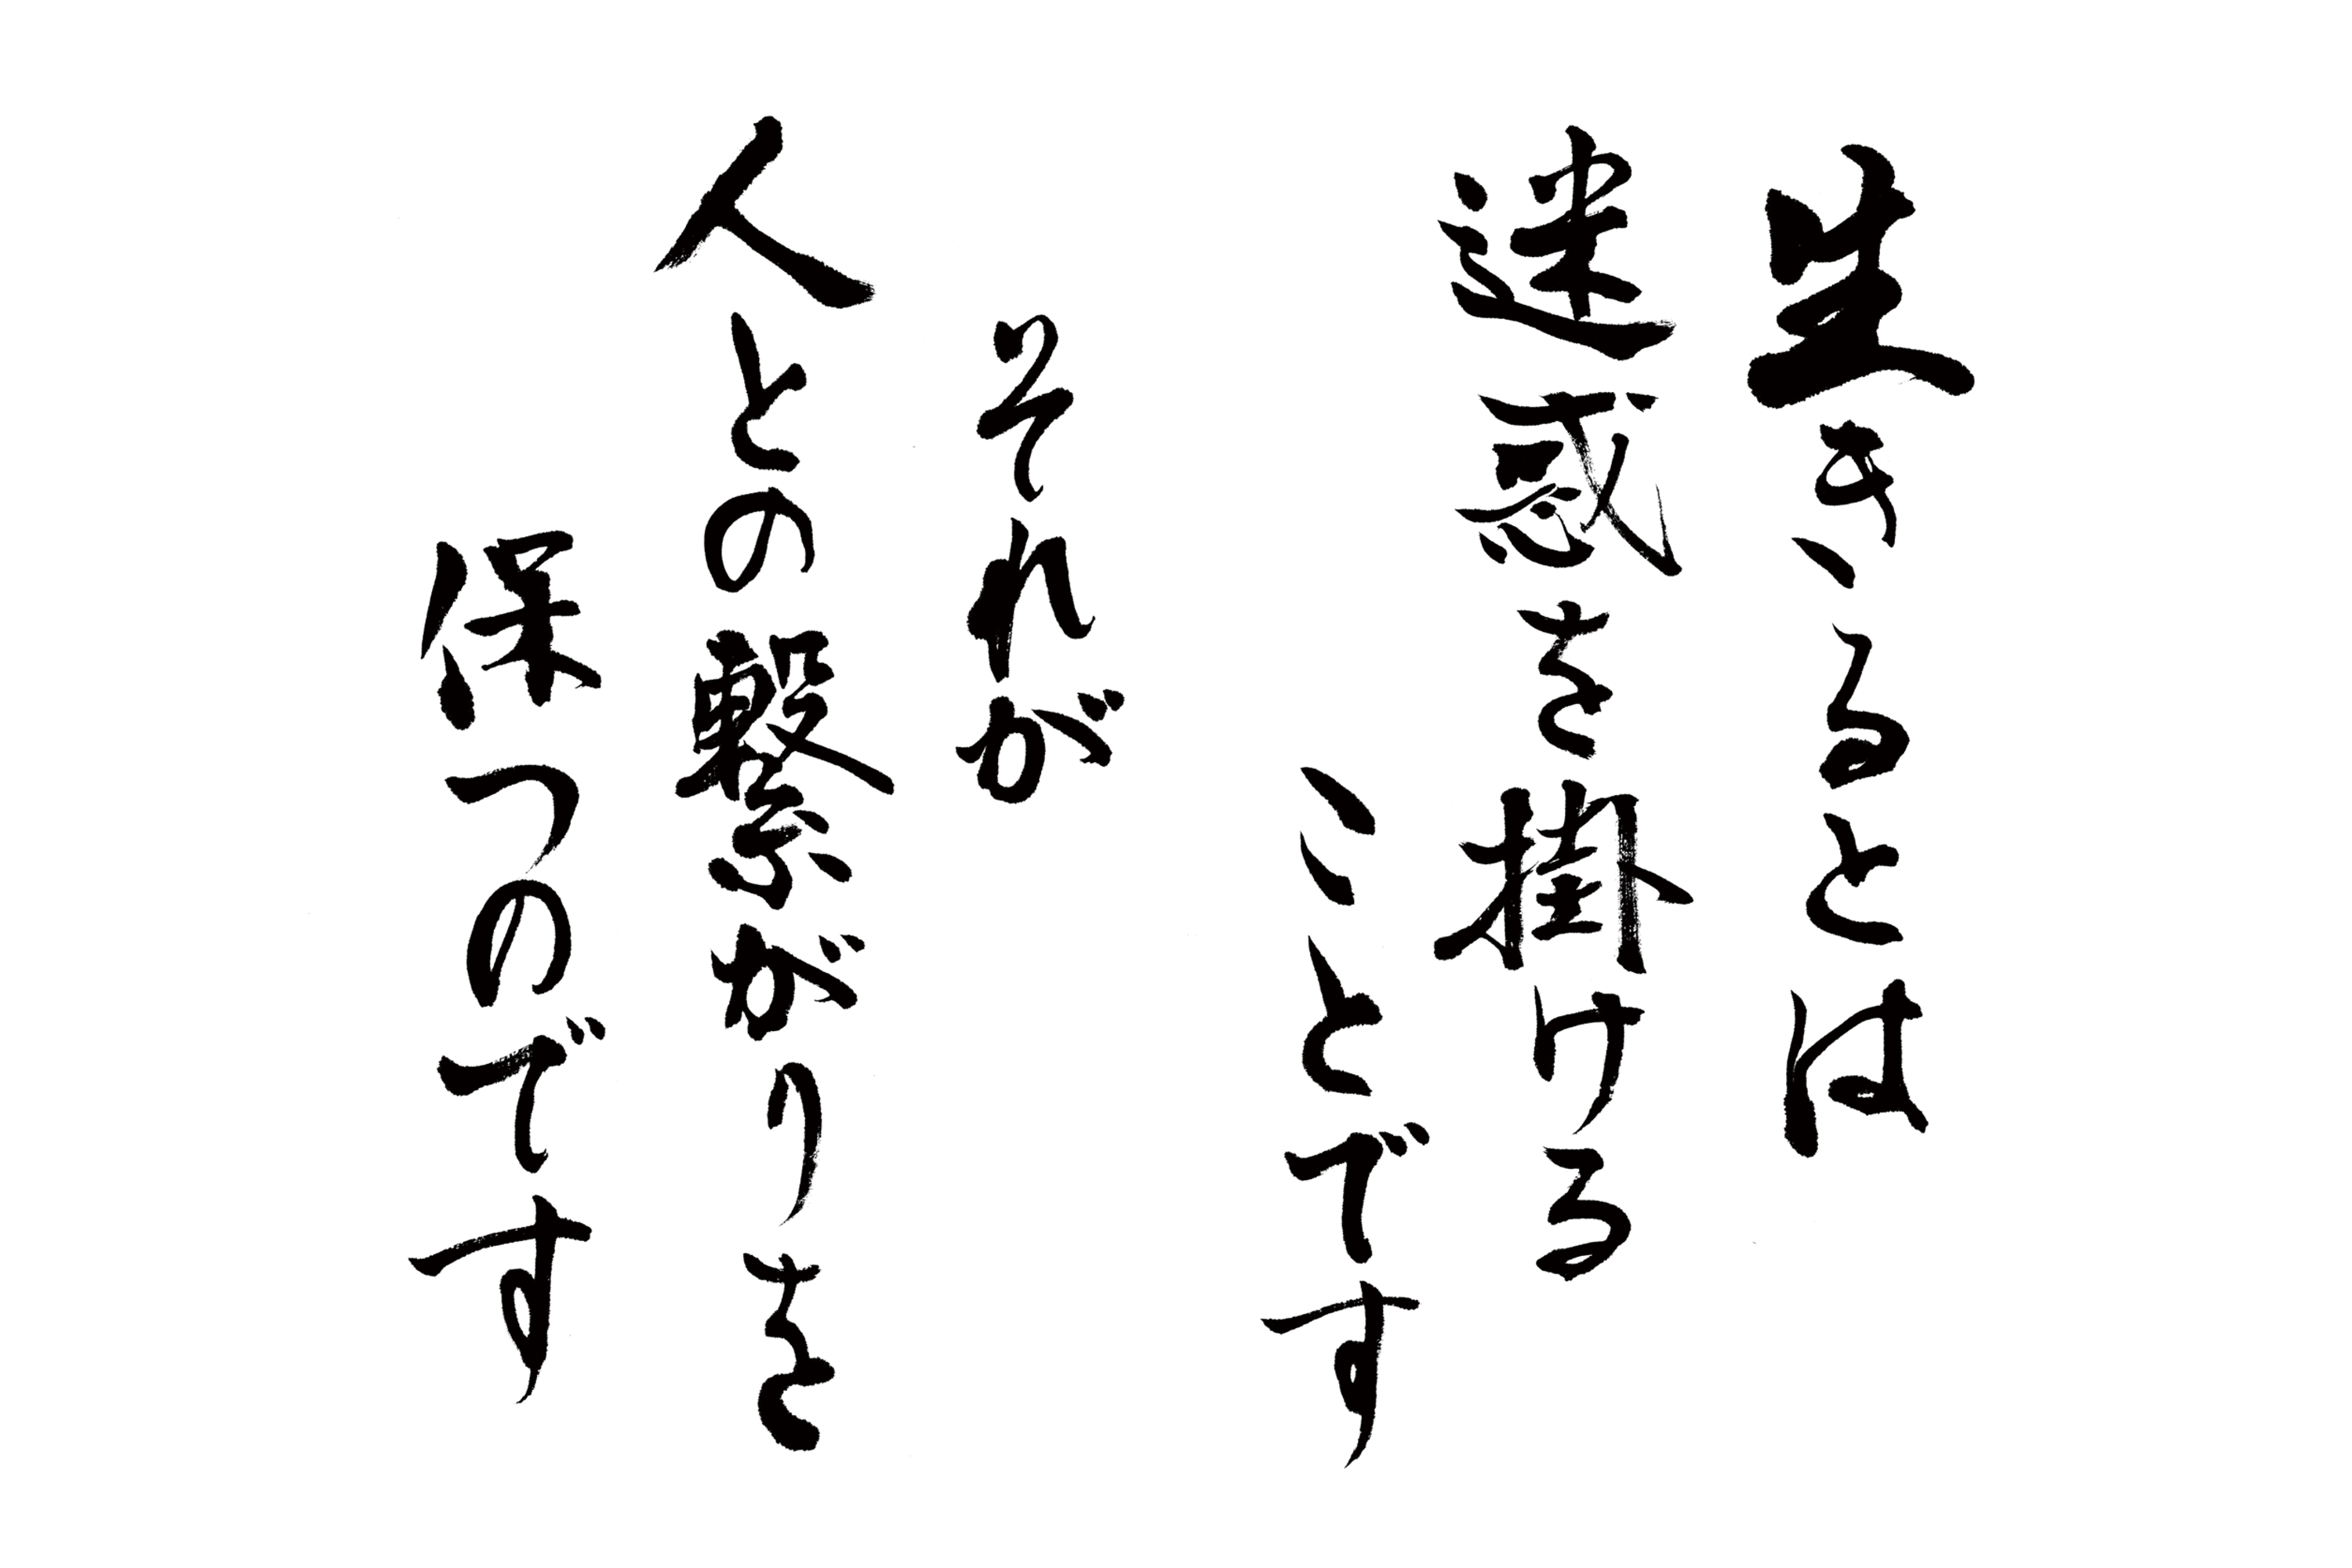 生きるとは
迷惑を掛ける
ことです
それが
人との繋がりを
保つのです